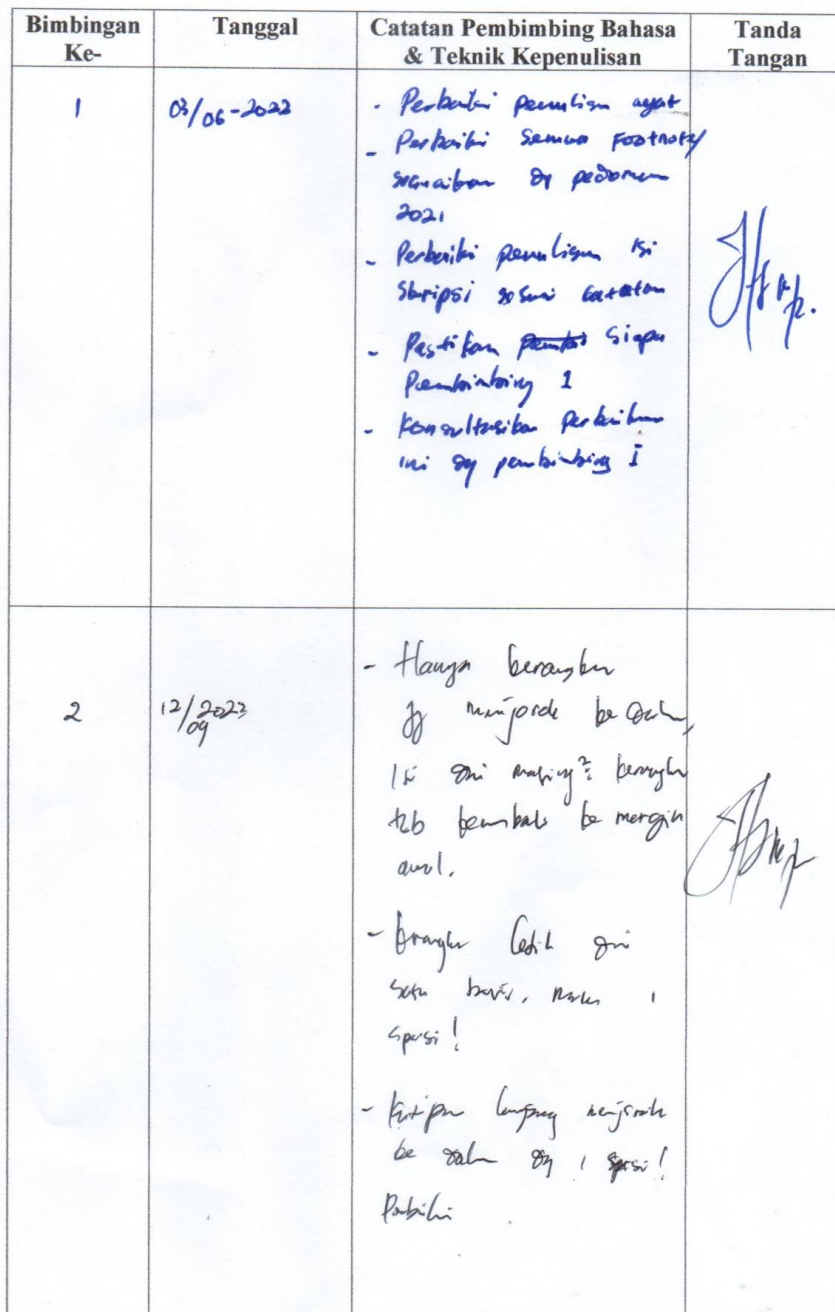 Bimbingan Ke-
Tanggal
Catatan Pembimbing Bahasa & Teknik Kepenulisan
Tanda Tangan
1
03/06-2022
- Perbaiki penulisan ayat
- Perbaiki semua Footnote/
sesuaikan dg pedoman
2021
- Perbaiki penulisan isi
skripsi sesuai catatan
- Pastikan siapa
Pembimbing 1
- Konsultasikan perbaikan
ini dg pembimbing I
2
12/09 2023
- Hanya kerangka
yg menjorok ke dalam,
isi dri masing²: kerangka
tsb kembali ke margin
awal.
- Kerangka lebih dri
satu baris, maka 1
spasi!
- Kutipan langsung menjorok
ke dalam dg 1 spasi!
Perbaiki